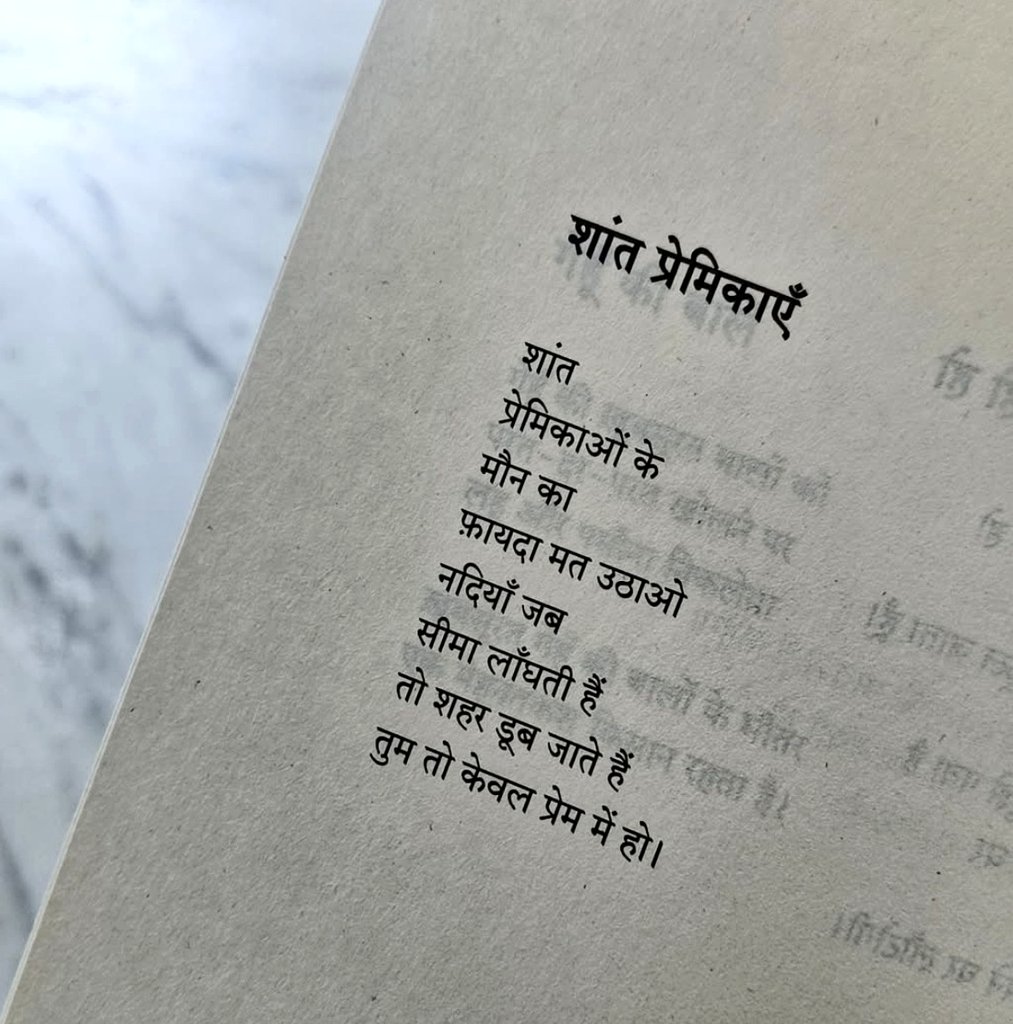 शांत प्रेमिकाएँ
शांत
प्रेमिकाओं के
मौन का
फ़ायदा मत उठाओ
नदियाँ जब
सीमा लाँघती हैं
तो शहर डूब जाते हैं
तुम तो केवल प्रेम में हो।